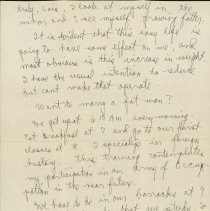 truly, Lois, I look at myself in the
mirror and I see myself growing fatter.
It is evident that this easy life is
going to have some effect on me, and
most obvious is this increase in weight.
I have the usual intention to reduce
but can't make that operate.
Want to marry a fat man?
We get up at 6 AM every morning.
Eat breakfast at 7 and go to our first
classes at 8. I specialize in
history. This training contemplates
my participation in an Army of Occu-
pation in the near future.
We have to be in our barracks at 7
that we study